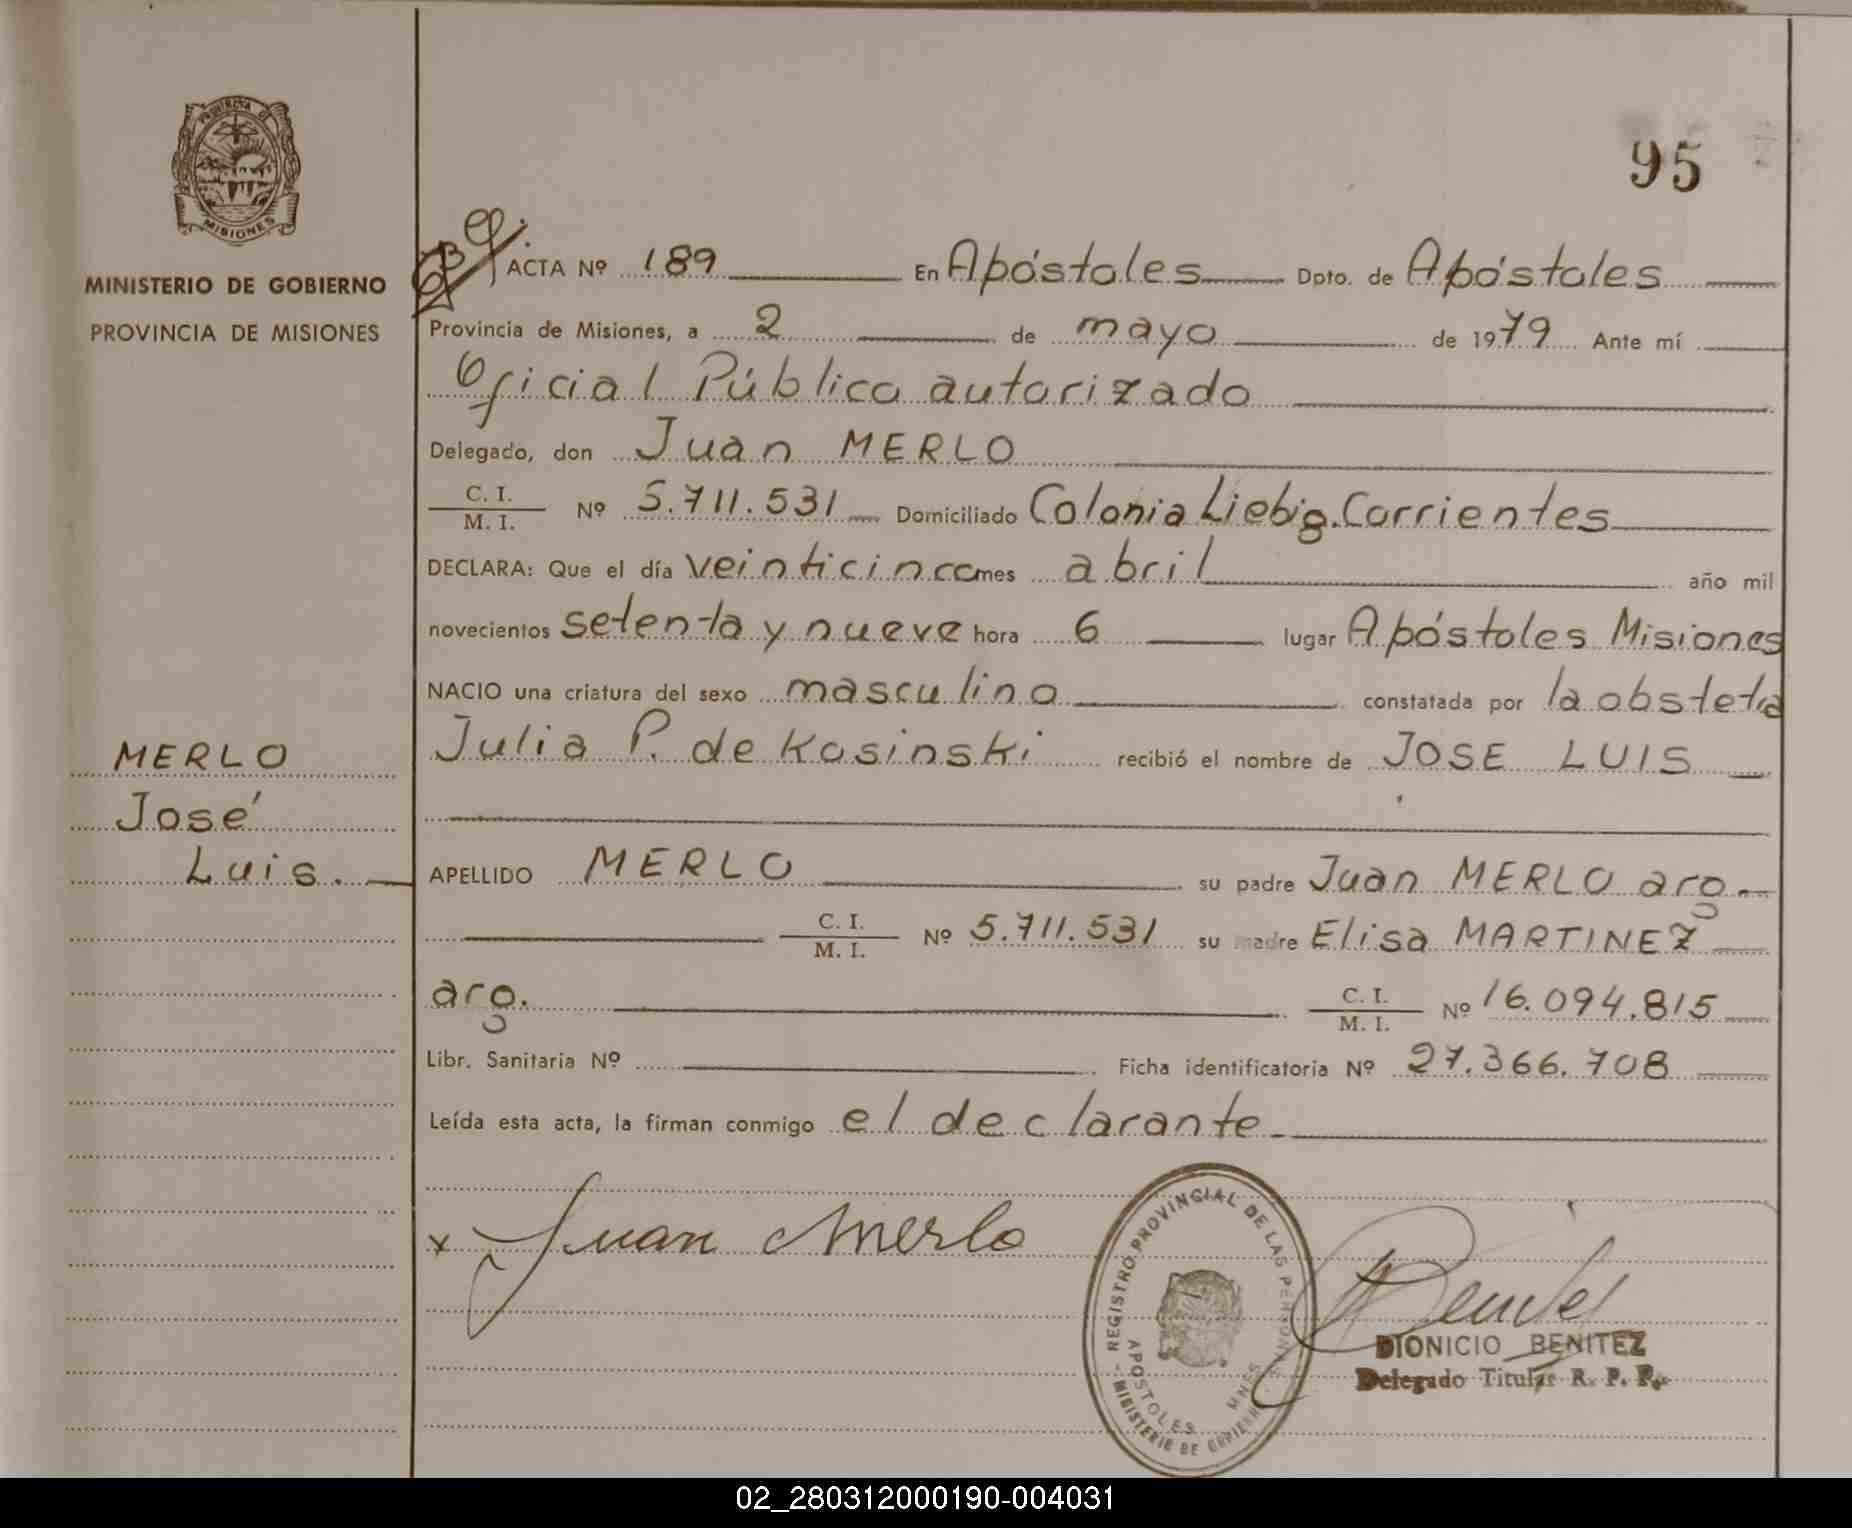 95
PROVINCIA DE
MISIONES
MINISTERIO DE GOBIERNO
PROVINCIA DE MISIONES
ACTA Nº 189 En Apóstoles Dpto. de Apóstoles
Provincia de Misiones, a 2 de mayo de 1979 Ante mí
Oficial Público autorizado
Delegado, don Juan MERLO
C. I.
M. I. Nº 5.711.531 Domiciliado Colonia Liebig. Corrientes
DECLARA: Que el día veinticinco mes abril año mil
novecientos setenta y nueve hora 6 lugar Apóstoles Misiones
NACIO una criatura del sexo masculino constatada por la obsteta
Julia P. de Kosinski recibió el nombre de JOSE LUIS
MERLO
José
Luis.
APELLIDO MERLO su padre Juan MERLO arg.
C. I.
M. I. Nº 5.711.531 su madre Elisa MARTINEZ
arg. C. I.
M. I. Nº 16.094.815
Libr. Sanitaria Nº Ficha identificatoria Nº 27.366.708
Leída esta acta, la firman conmigo el declarante
x Juan Merlo
REGISTRO PROVINCIAL DE LAS PERSONAS
APOSTOLES MNES
MINISTERIO DE GOBIERNO
DIONICIO BENITEZ
Delegado Titular R. P. P.
02_280312000190-004031